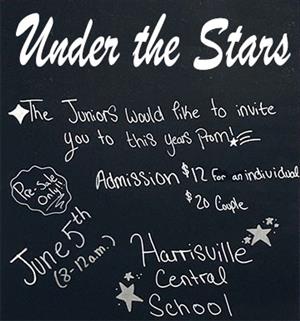 Under the Stars
The Juniors would like to invite
you to this years Prom!
Pre-Sale
Only!!
Admission $12 for an individual
$20 Couple
June 5th
(8-12a.m.)
Harrisville
Central
School